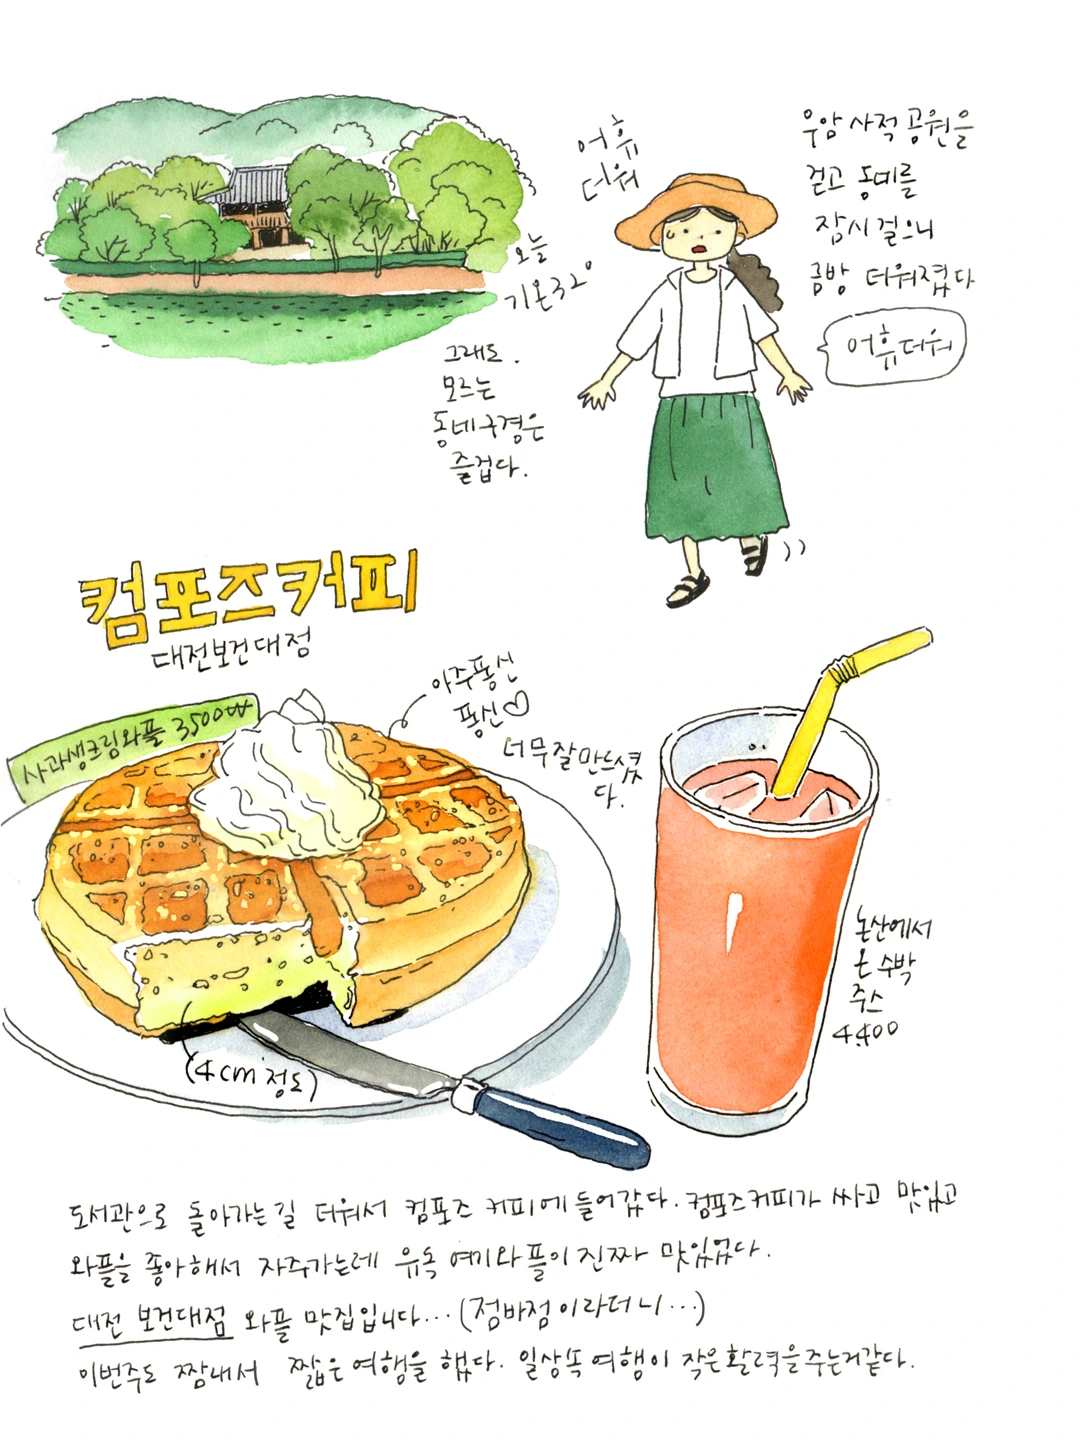 어휴
더워
우암 사적 공원을
걷고 동네를
잠시 걸으니
금방 더워졌다
어휴더워
오늘
기온 32°
그래도.
모르는
동네구경은
즐겁다.
컴포즈커피
대전보건대점
사과생크림와플 3,500₩
아주푹신
푹신♡
너무잘만드셨
다.
(4cm 정도)
논산에서
온 수박
주스
4,400
도서관으로 돌아가는길 더워서 컴포즈 커피에 들어갔다. 컴포즈커피가 싸고 맛있고
와플을 좋아해서 자주가는데 유독 여기와플이 진짜 맛있었다.
대전 보건대점 와플 맛집입니다... (점바점이라더니...)
이번주도 짬내서 짧은여행을 했다. 일상속 여행이 작은활력을주는거같다.